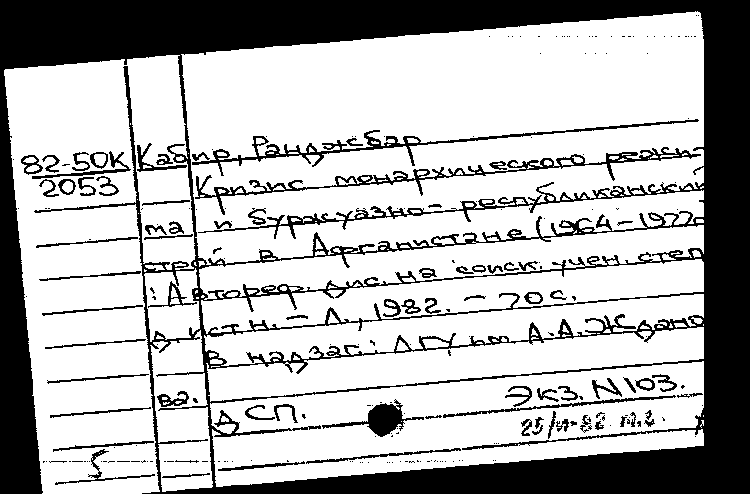 82-50К Кабир, Ранджбар
2053 Кризис монархического режи-
ма и буржуазно-республиканский
строй в Афганистане (1964-1977г
: Автореф. дис. на соиск. учен. степ
д. ист. н. - Л., 1982. - 70 с.
В надзаг.: ЛГУ им А.А. Ждано
ва.
ДСП. Экз. N 103.
25/
5